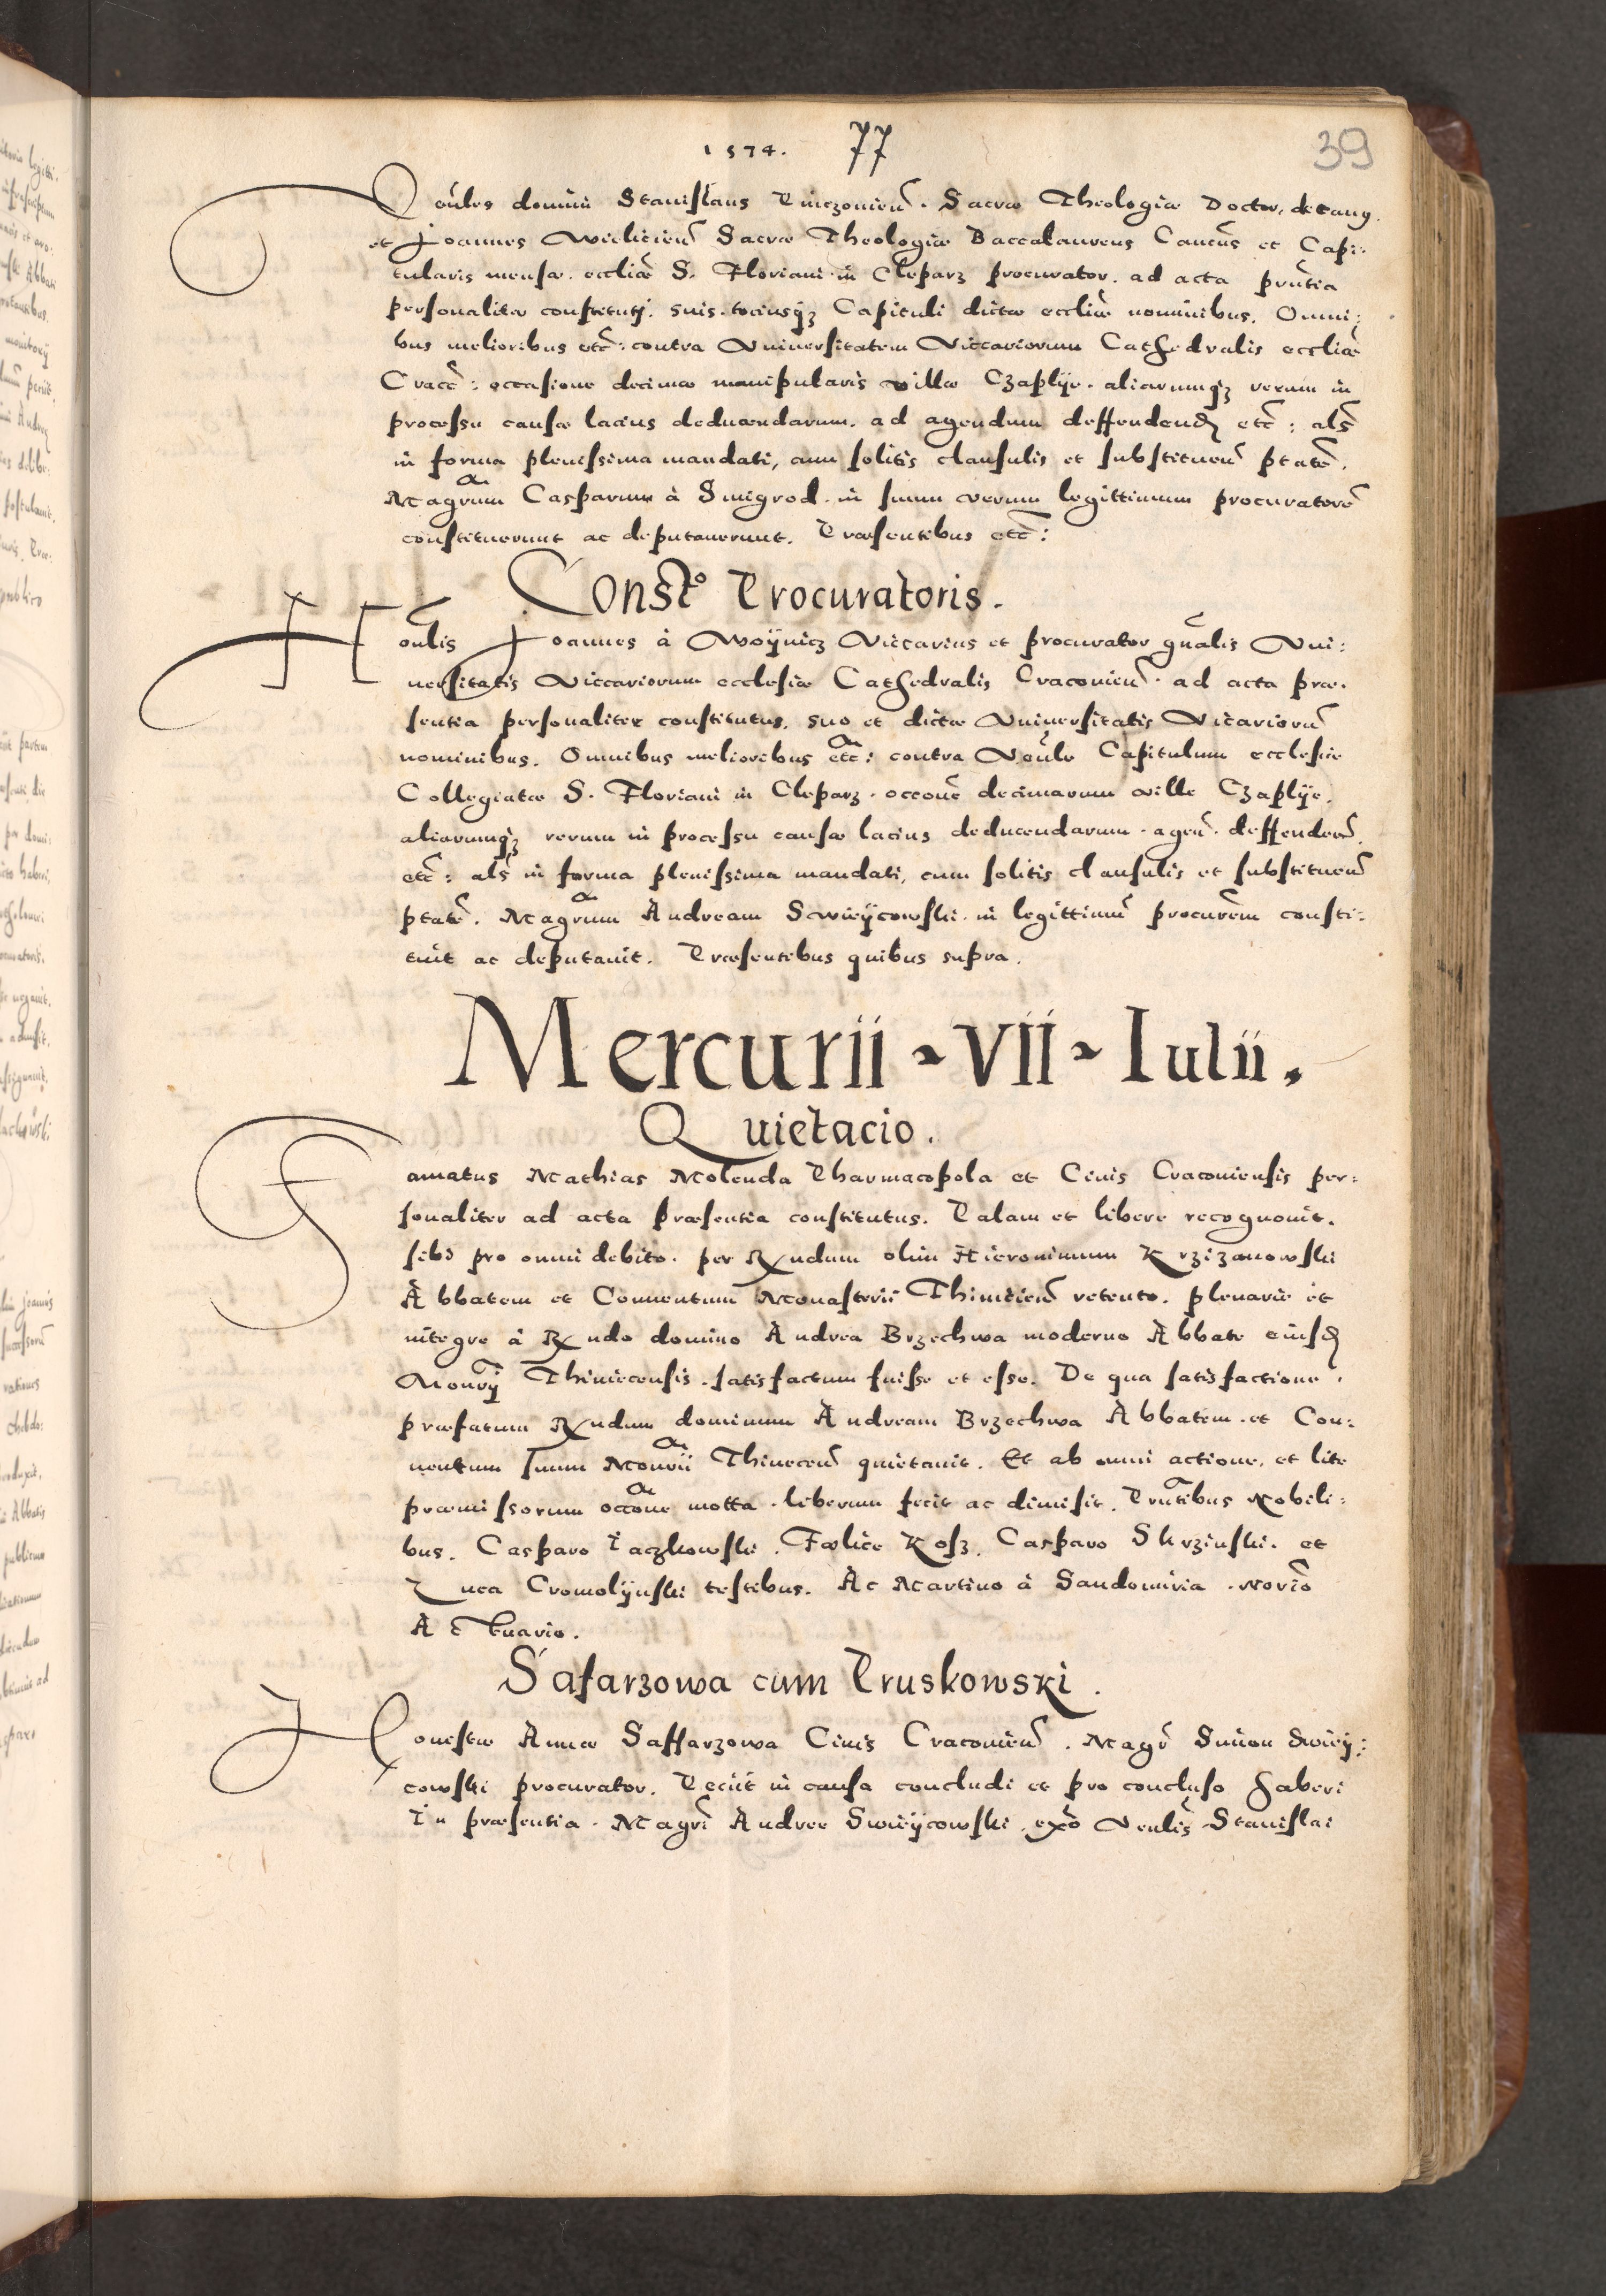 1574. 77 39
Venles domini Stanislaus Pinczovien̄. Sacræ Theologiæ Doctor, decanꝰ.
et Joannes Wielicien̄ Sacræ Theologiæ Baccalaureus Cancūs et Capi:
tularis mensæ ecclīæ S. Floriani in Cleparz procurator. ad acta prn̄tia
personaliter constituti. suis tociusqꝫ Capituli dictæ ecclīæ nominibus. Omni:
bus melioribus etc̄: contra Vniuersitatem Viccariorum Cathedralis ecclīæ
Cracc̄: occasione decimæ manipularis villæ Czaplÿe. aliarumqꝫ rerum in
processu causæ lacius deducendarum. ad agendum deffendend etc̄: als̄
in forma plenissima mandati, cum solitis clausulis et substituen̄ ptāte.
Magr̄um Casparum à Smigrod. in suum verum legittimum procuratorē
constituerunt ac deputauerunt. Præsentibus etc̄:
Const° Procuratoris.
Honl̄is Joannes à Woÿnicz Viccarius et procurator gn̄alis Vni:
uersitatis Viccariorum ecclesiæ Cathedralis Cracouien̄. ad acta præ.
sentia personaliter constitutus. suo et dictæ Vniuersitatis Vicariorū
nominibus. Omnibus melioribus etc̄: contra Venl̄e Capitulum ecclesiæ
Collegiatæ S. Floriani in Cleparz. occon̄e decimarum ville Czaplÿe.
aliarumqꝫ rerum in processu causæ lacius deducendarum. agen̄. deffenden̄.
etc̄: als̄ in forma plenissima mandati, cum solitis clausulis et substituen̄
ptāte. Magr̄um Andream Swieÿcowski. in legittimū procur̄em consti:
tuit ac deputauit. Præsentibus quibus supra.
Mercurii ~ VII ~ Iulii.
Quietacio.
Famatus Mathias Molenda Pharmacopola et Ciuis Cracouiensis per:
sonaliter ad acta præsentia constitutus. Palam et libere recognouit.
sibi pro omni debito. per Rndum olim Hieronimum Krzizanowski
Abbatem et Conuentum Monasterii Thinicien̄ retento. plenarie et
integre à Rndo domino Andrea Brzechwa moderno Abbate eiusd
Mon̄rÿ Thiniecensis. satisfactum fuisse et esse. De qua satisfactione.
præfatum Rndum dominum Andream Brzechwa Abbatem. et Con:
uentum suum Mon̄rii Thinecen̄ quietauit. Et ab omni actione, et lite
præmissorum occōne motta. liberum fecit ac dimisit. Prn̄tibus Nobili:
bus. Casparo Iaczkowski. Fælice Kosz. Casparo Skrzinski. et
Luca Cromolÿnski testibus. Ac Martino à Sandomiria. Norīo
Actuario.
Safarzowa cum Pruskowski.
Honestæ Annæ Saffarzowa Ciuis Cracouien̄. Magr̄ Simon Swieÿ:
cowski procurator. Peciit in causa concludi et pro concluso haberi
In præsentia. Magr̄i Andree Swieÿcowski. exo Venlis̄ Stanislai